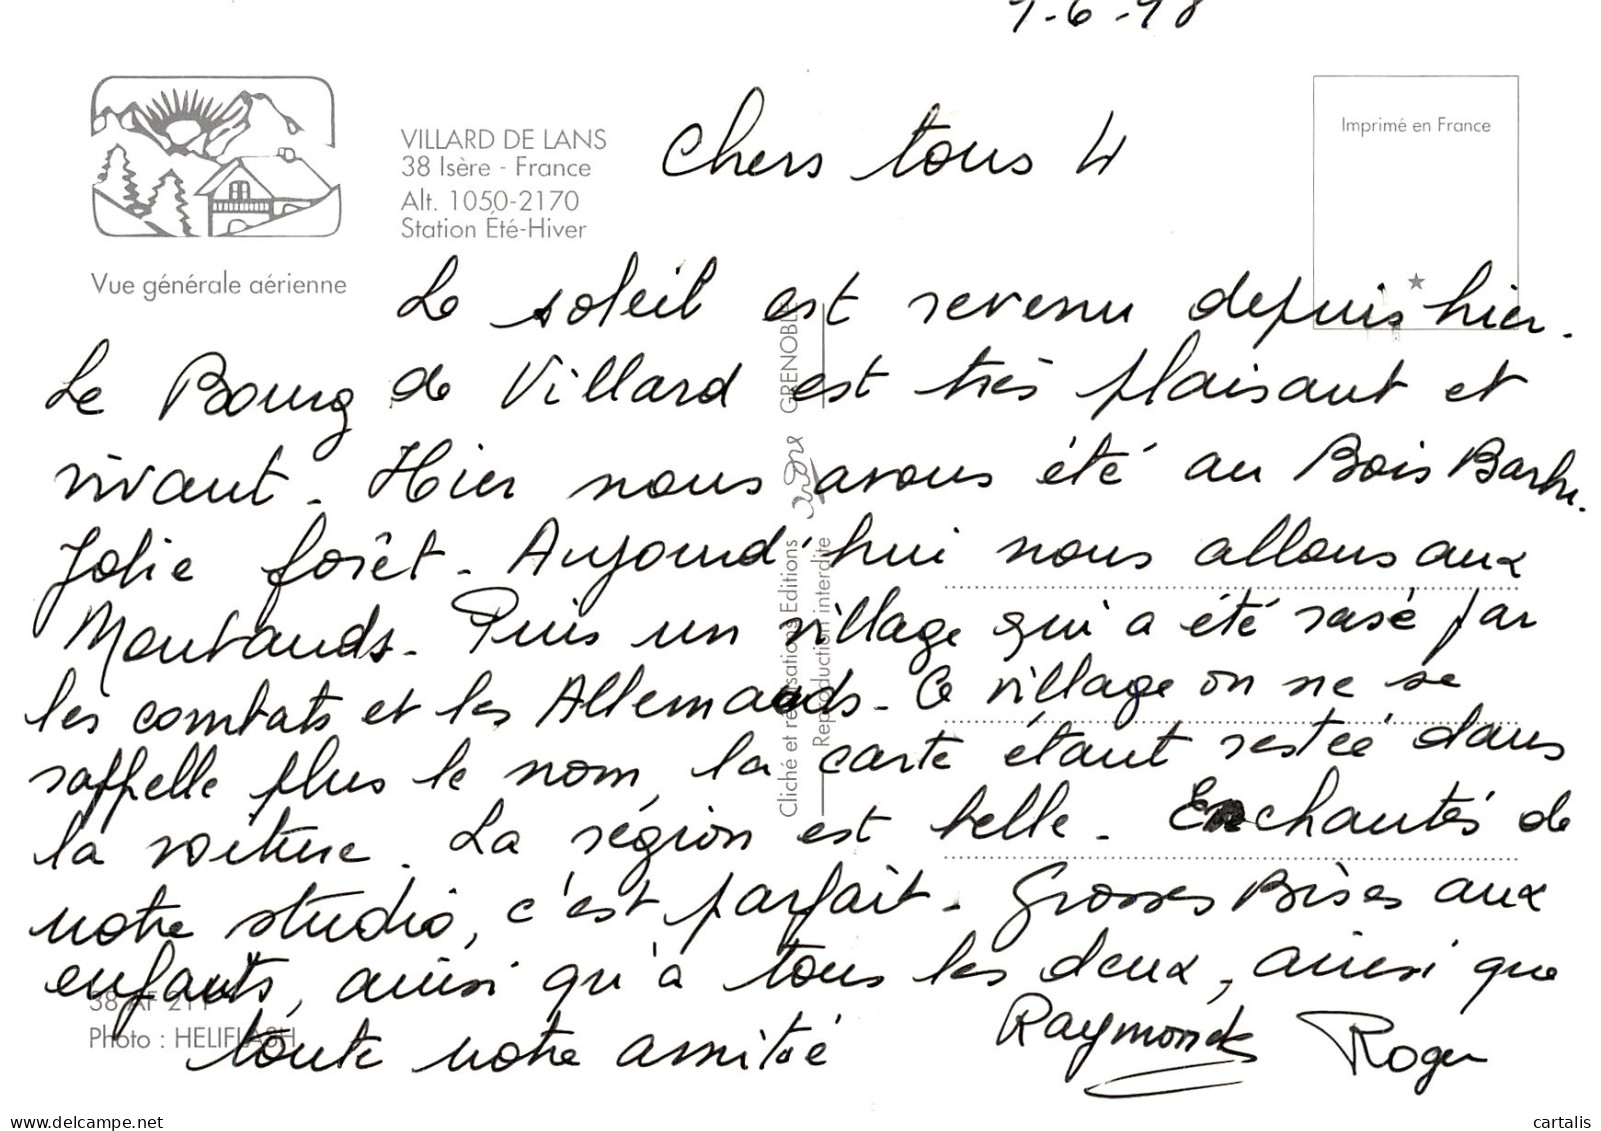 VILLARD DE LANS
38 Isère - France
Alt. 1050-2170
Station Été-Hiver
Vue générale aérienne
Imprimé en France
Chers tous 4
Le soleil est revenu depuis hier.
Le Bourg de Villard est très plaisant et
vivant. Hier nous avons été au Bois Barbu.
Jolie forêt. Aujourd'hui nous allons aux
Montauds. Puis un village qui a été rasé par
les combats et les Allemands. Ce village on ne se
rappelle plus le nom, la carte étant restée dans
la voiture. La région est belle. Enchantés de
notre studio, c'est parfait. Grosses Bises aux
enfants, ainsi qu'à tous les deux, ainsi que
toute notre amitié
Raymonde Roger
GRENOBLE
Cliché et réalisations Editions
Reproduction interdite
38 AF 211
Photo : HELIFLASH
www.delcampe.net
cartalis